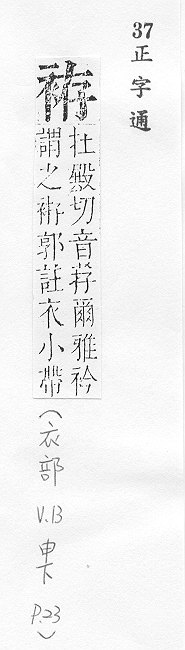 37 正字通
袸
杜殿切音荐爾雅衿
謂之袸郭註衣小帶
(衣部 V.13 申下 P.23)